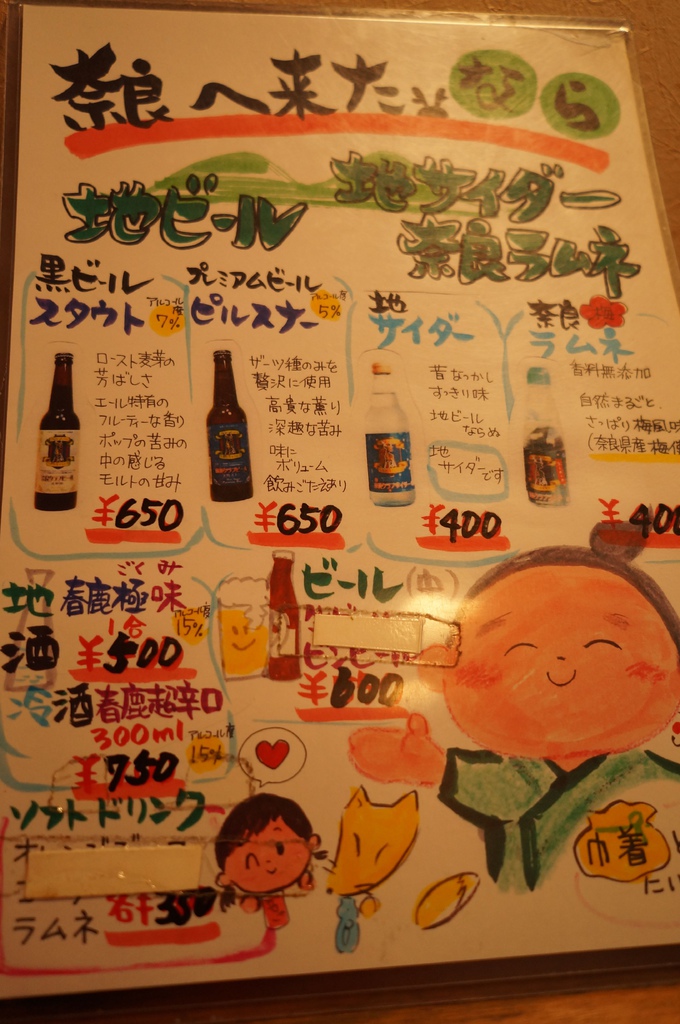 奈良へ来たなら
地ビール
地サイダー
奈良ラムネ
黒ビール
スタウト
アルコール度
7%
ロースト麦芽の
芳ばしさ
エール特有の
フルーティーな香り
ホップの苦みの
中の感じる
モルトの甘み
¥650
プレミアムビール
ピルスナー
アルコール度
5%
ザーツ種のみを
贅沢に使用
高貴な薫り
深趣な苦み
味に
ボリューム
飲みごたえあり
¥650
地
サイダー
昔なつかし
すっきり味
地ビール
ならぬ
地
サイダーです
¥400
奈良
梅
ラムネ
香料無添加
自然まるごと
さっぱり梅風味
(奈良県産梅使
¥400
地酒
ごくみ
春鹿極味
アルコール度
15%
1合
¥500
冷酒春鹿超辛口
300ml
アルコール度
15%
¥750
ビール(中)
ビンビール
¥600
ソフトドリンク
ラムネ
各¥350
巾着